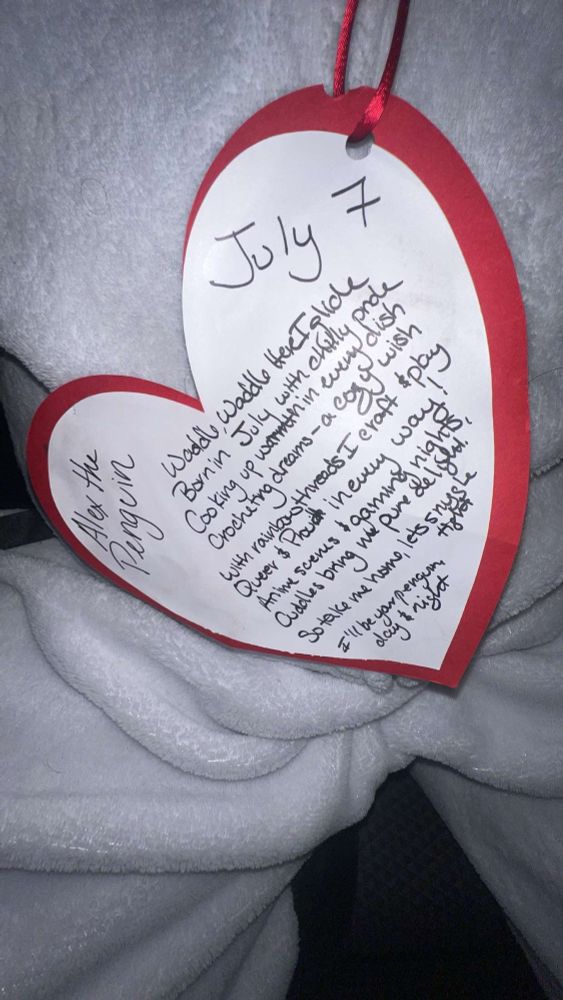 July 7
Alex the
Penguin
Waddle, Waddle Here I glide
Born in July with chilly pride
Cooking up warmth in every dish
Crocheting dreams - a cozy wish
With rainbow threads I craft & play
Queer & Proud in every way!
Anime scenes & gaming nights,
Cuddles bring me pure delight!
So take me home, lets snuggle
tight
I'll be your penguin,
day & night